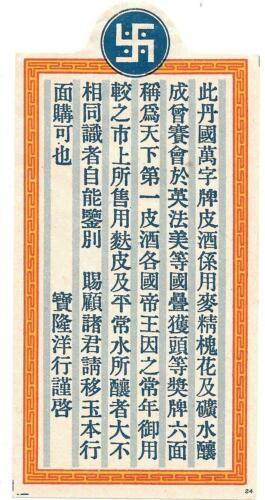 此丹國萬字牌皮酒係用麥精槐花及礦水釀
成曾賽會於英法美等國疊獲頭等獎牌六面
稱為天下第一皮酒各國帝王因之常年御用
較之市上所售用麩皮及平常水所釀者大不
相同識者自能鑒別　賜顧諸君請移玉本行
面購可也　寶隆洋行謹啓
24